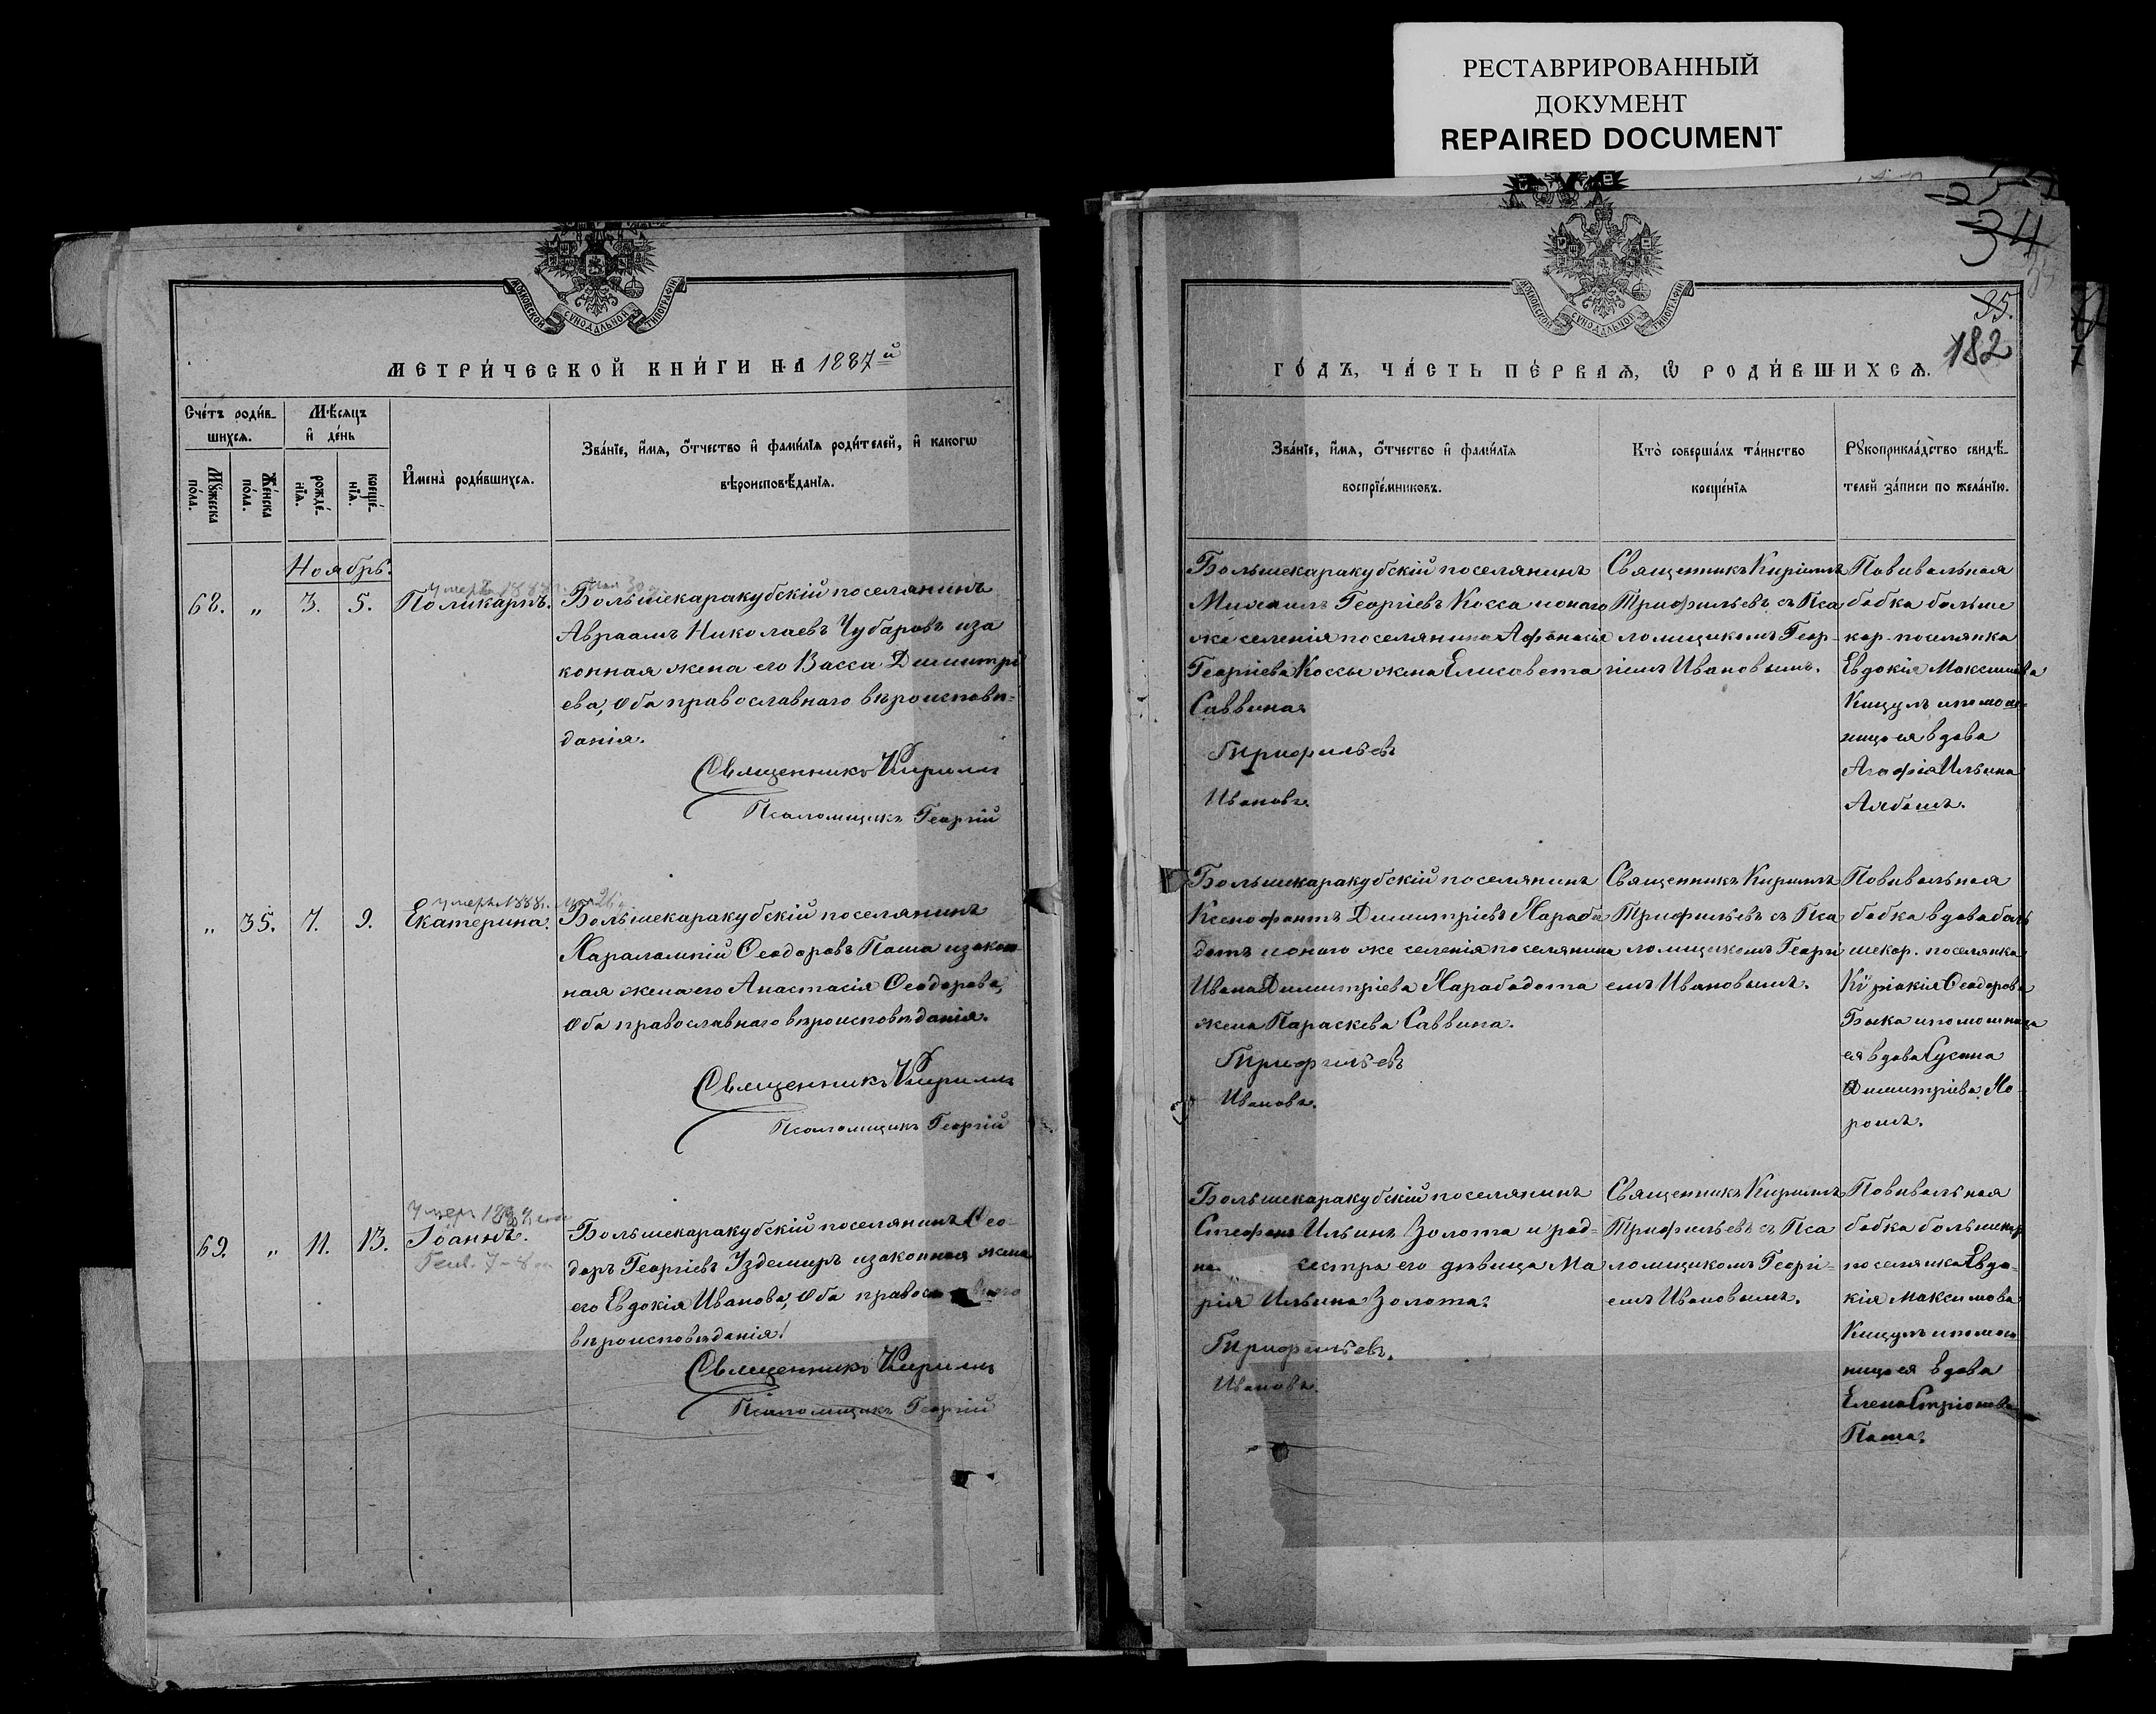 РЕСТАВРИРОВАННЫЙ
ДОКУМЕНТ
REPAIRED DOCUMENT
34
35.
182
МОСКОВСКОЙ СУНОДАЛЬНОЙ ТИПОГРАФІИ
МЕТРИ́ЧЕСКОЙ КНИ́ГИ НА 1887й
Сче́тъ роди́в-
шихсѧ.
Мѣ́сѧцъ
и҆ де́нь
Мꙋ́жеска
по́ла.
Же́нска
по́ла.
рожде́-
нїѧ.
креще́-
нїѧ.
И҆мена̀ роди́вшихсѧ.
Зва́нїе, и҆́мѧ, ѻ҆́тчество и҆ фами́лїѧ роди́телей, и҆ како́гѡ
вѣроисповѣ́данїѧ.
Ноябрь.
умеръ 1888
68. „ 3. 5. Поликарпъ.
Большекаракубскій поселянинъ
Авраамъ Николаевъ Чубаровъ иза
конная жена его Васса Димитрі
ева, оба православнаго вѣроисповѣ-
данія.
Священникъ Кириллъ
Псаломщикъ Георгій
умеръ 1888
„ 35. 7. 9. Екатерина.
Большекаракубскій поселянинъ
Харалампій Ѳеодоровъ Паша изакон
ная жена его Анастасія Ѳеодорова,
оба православнаго вѣроисповѣданія.
Священникъ Кириллъ
Псаломщикъ Георгій
умеръ
69. „ 11. 13. Іоаннъ.
Большекаракубскій поселянинъ Ѳео-
доръ Георгіевъ Уздемиръ изаконная жена
его Евдокія Иванова, оба православнаго
вѣроисповѣданія.
Священникъ Кириллъ
Псаломщикъ Георгій
МОСКОВСКОЙ СУНОДАЛЬНОЙ ТИПОГРАФІИ
ГО́ДЪ, ЧА́СТЬ ПЕ́РВАѦ, Ѡ҆ РОДИ́ВШИХСѦ.
Зва́нїе, и҆́мѧ, ѻ҆́тчество и҆ фами́лїѧ
воспрїе́мниковъ.
Кто̀ соверша́лъ та́инство
креще́нїѧ
Рꙋкоприкла́дство свидѣ́-
телей за́писи по жела́нїю.
Большекаракубскій поселянинъ
Михаилъ Георгіевъ Косса ионаго
же селенія поселянина Афанасія
Георгіева Коссы жена Елисавета
Саввина.
Трифильевъ
Ивановъ.
Священникъ Кириллъ
Трифильевъ съ Пса
ломщикомъ Геор-
гіемъ Ивановымъ.
Повивальная
бабка больше
кар. поселянка
Евдокія Максимова
Кицулъ ипомощ-
ница ея вдова
Агафія Ильина
Алабашъ.
Большекаракубскій поселянинъ
Ксенофонтъ Димитріевъ Хараба
датъ ионаго же селенія поселянина
Ивана Димитріева Харабадота
жена Параскева Саввина.
Трифильевъ
Ивановъ.
Священникъ Кириллъ
Трифильевъ съ Пса
ломщикомъ Георгі
емъ Ивановымъ.
Повивальная
бабка вдова боль
шекар. поселянка
Кѵріакія Ѳеодорова
Быка ипомошница
ея вдова Сусана
Димитріева Хо-
рошъ.
Большекаракубскій поселянинъ
Стефанъ Ильинъ Золота и род-
на сестра его дѣвица Ма
рія Ильина Золота.
Трифильевъ.
Ивановъ.
Священникъ Кириллъ
Трифильевъ съ Пса
ломщикомъ Георгі-
емъ Ивановымъ.
Повивальная
бабка большекар
поселянка Евдо-
кія Максимова
Кицулъ ипомощ
ница ея вдова
Елена
Паша.